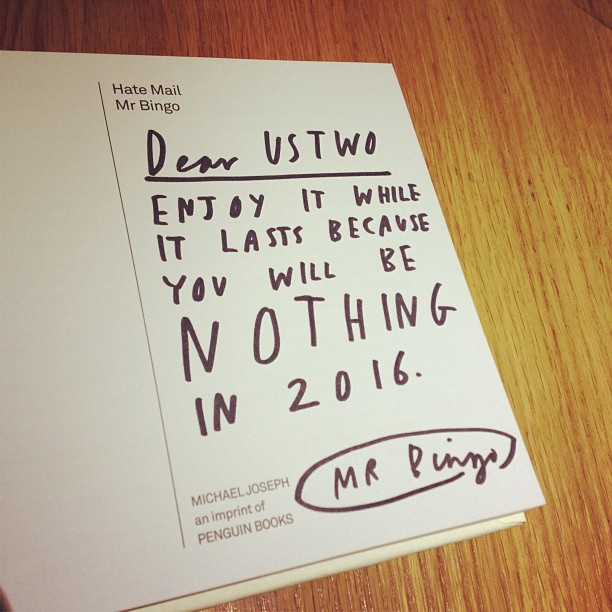 Hate Mail
Mr Bingo
Dear USTWO
ENJOY IT WHILE
IT LASTS BECAUSE
YOU WILL BE
NOTHING
IN 2016.
MR Bingo
MICHAEL JOSEPH
an imprint of
PENGUIN BOOKS